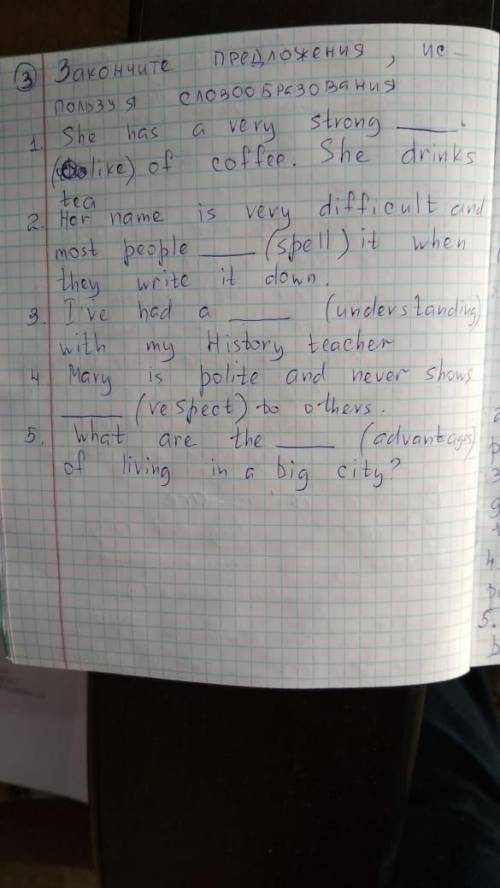 ③ Закончите предложения, ис-
пользуя словообразования
1. She has a very strong ____.
(like) of coffee. She drinks
tea
2. Her name is very difficult and
most people ____ (spell) it when
they write it down.
3. I've had a ____ (understanding)
with my History teacher
4 Mary is polite and never shows
____ (respect) to others.
5. What are the ____ (advantages)
of living in a big city?
4.
5.